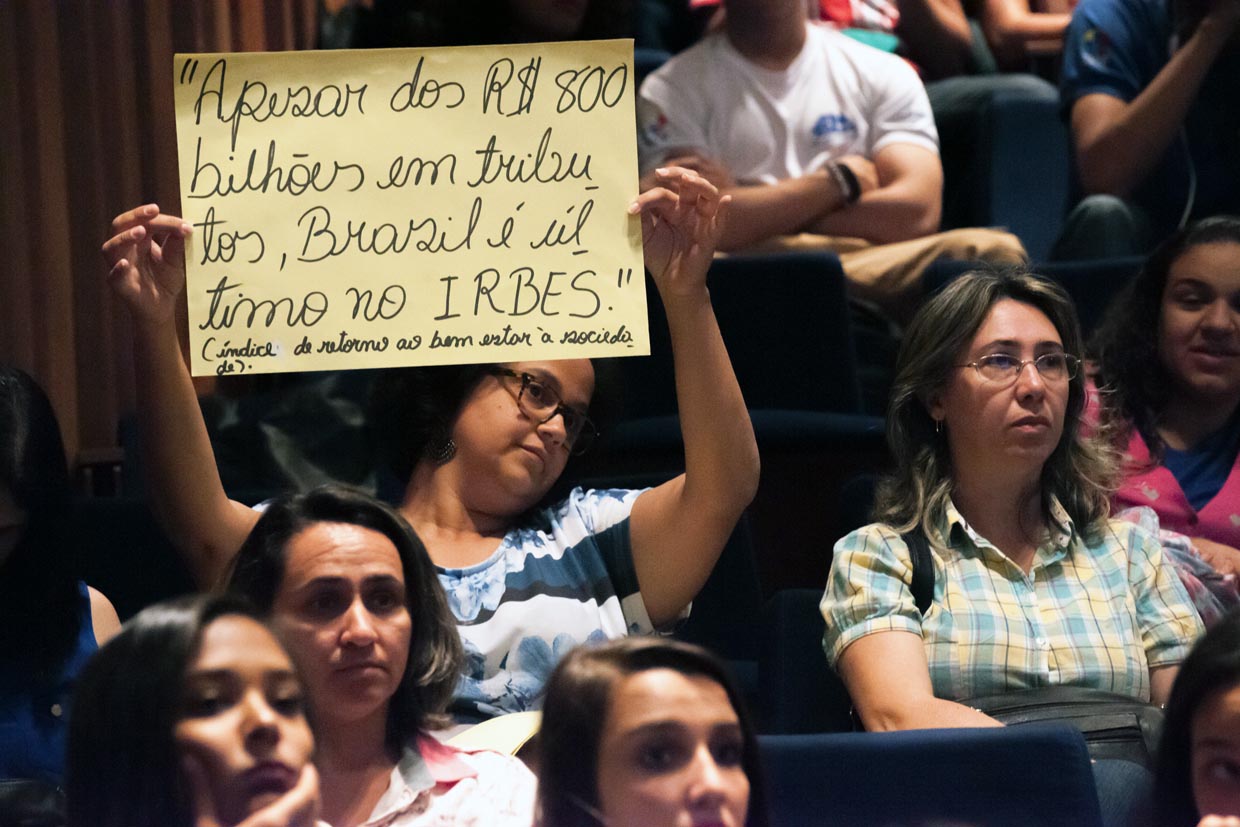 "Apesar dos R$ 800
bilhões em tribu
tos, Brasil é úl
timo no IRBES."
(índice de retorno ao bem estar à socieda
de).